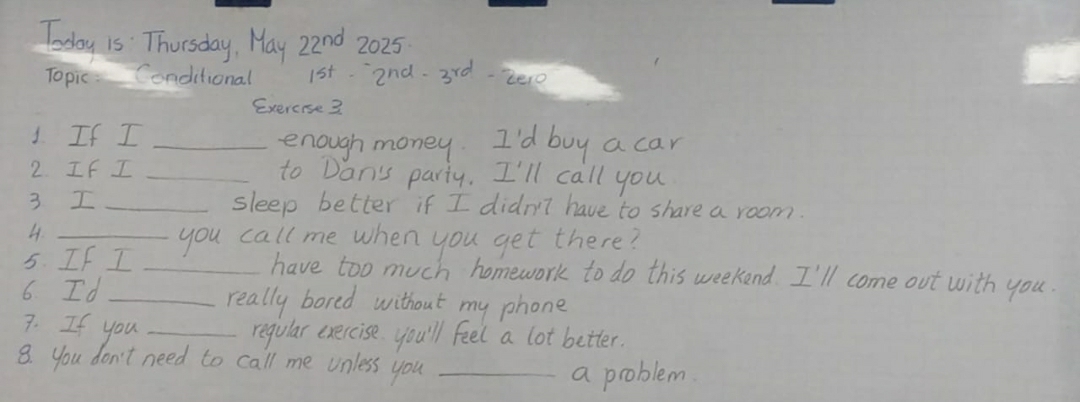 Today is: Thursday, May 22nd 2025.
Topic: Conditional 1st - 2nd - 3rd - zero
Exercise 3
1. If I ________ enough money. I'd buy a car
2. If I ________ to Dan's party, I'll call you
3. I ________ sleep better if I didn't have to share a room.
4. ________ you call me when you get there?
5. If I ________ have too much homework to do this weekend. I'll come out with you.
6. I'd ________ really bored without my phone
7. If you ________ regular exercise. you'll feel a lot better.
8. You don't need to call me unless you ________ a problem.